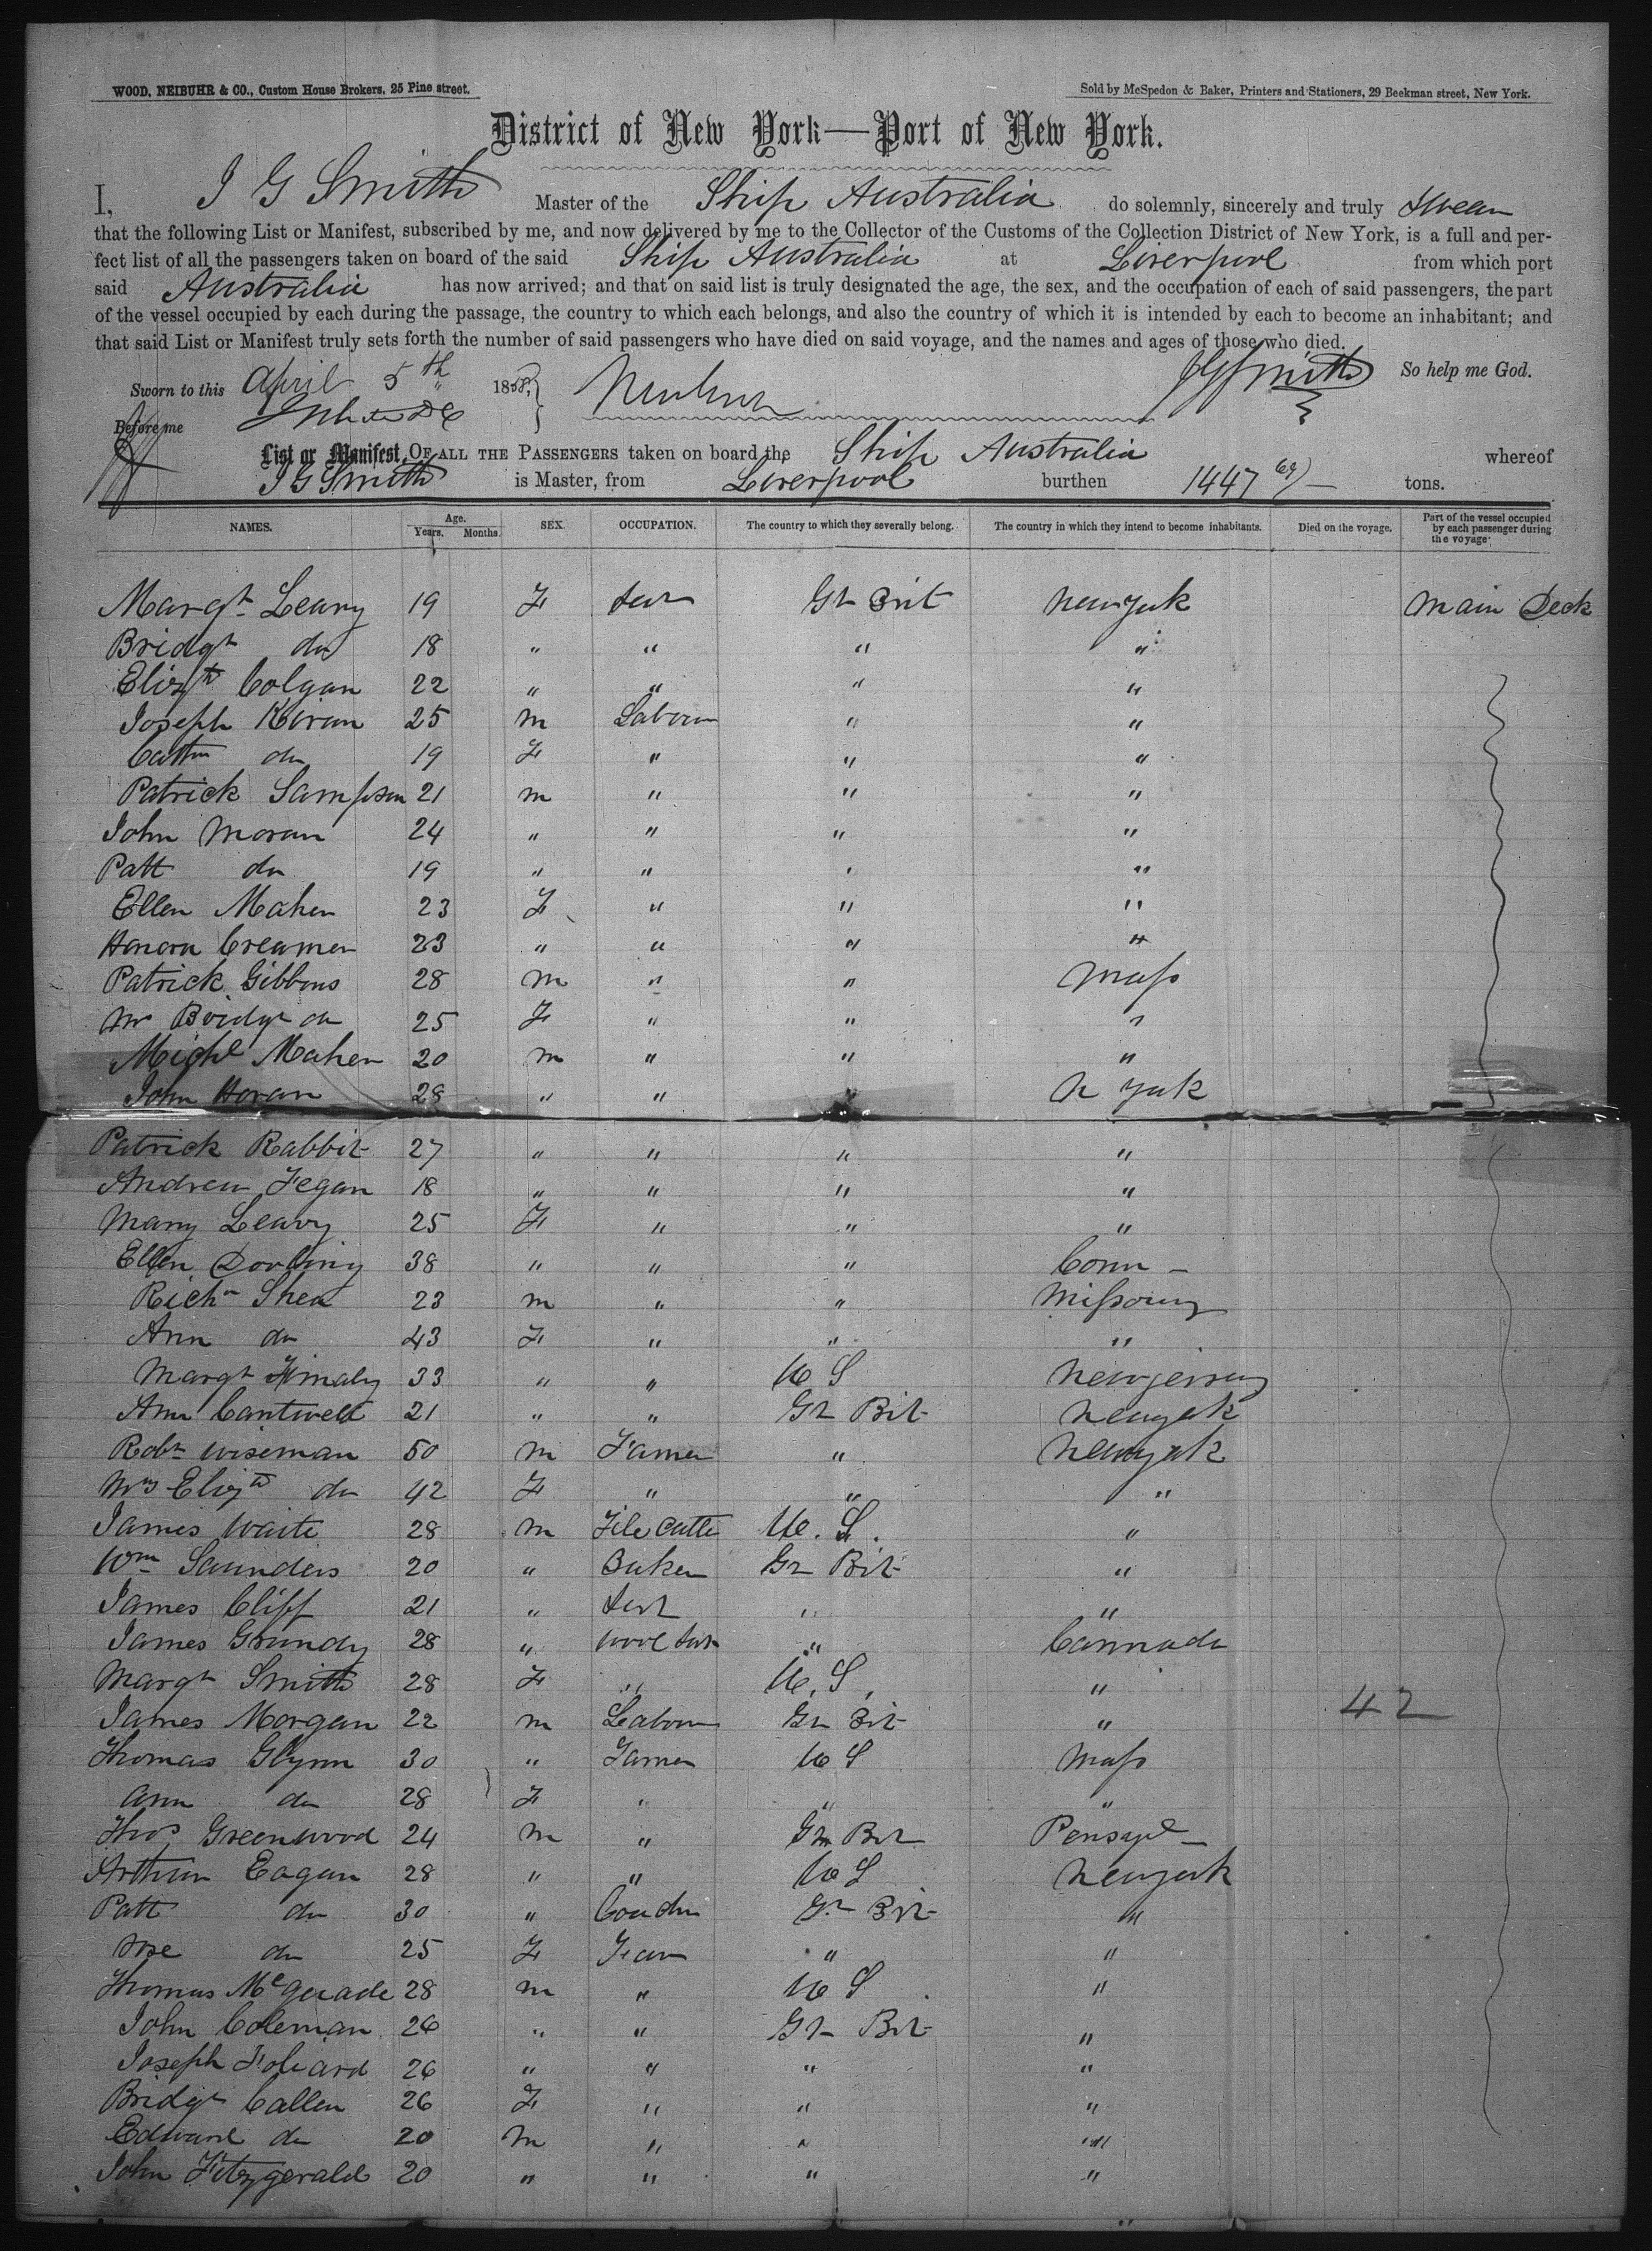 WOOD, NEIBUHR & CO., Custom House Brokers, 25 Pine street.
Sold by McSpedon & Baker, Printers and Stationers, 29 Beekman street, New York.
District of New York—Port of New York.
I, J G Smith Master of the Ship Australia do solemnly, sincerely and truly swear
that the following List or Manifest, subscribed by me, and now delivered by me to the Collector of the Customs of the Collection District of New York, is a full and per-
fect list of all the passengers taken on board of the said Ship Australia at Liverpool from which port
said Australia has now arrived; and that on said list is truly designated the age, the sex, and the occupation of each of said passengers, the part
of the vessel occupied by each during the passage, the country to which each belongs, and also the country of which it is intended by each to become an inhabitant; and
that said List or Manifest truly sets forth the number of said passengers who have died on said voyage, and the names and ages of those who died.
Sworn to this April 5th 1858, JG Smith So help me God.
Before me
List or Manifest, OF ALL THE PASSENGERS taken on board the Ship Australia whereof
J G Smith is Master, from Liverpool burthen 1447 tons.
NAMES. Age. Years. Months. SEX. OCCUPATION. The country to which they severally belong. The country in which they intend to become inhabitants. Died on the voyage. Part of the vessel occupied by each passenger during the voyage.
Margt Leary 19 F Gt Brit New york Main Deck
Bridgt do 18 " " " "
Elizth Colgan 22 " " " "
Joseph Kiran 25 m Labour " "
Cathn do 19 F " " "
Patrick Sampson 21 m " " "
John Moran 24 " " " "
Patt do 19 " " " "
Ellen Maher 23 F " " "
Honora Creamer 23 " " " "
Patrick Gibbons 28 m " " Mass
Mrs Bridgt do 25 F " " "
Michl Maher 20 m " " "
John Horan 28 " " " N york
Patrick Rabbit 27 " " " "
Andrew Fegan 18 " " " "
Mary Leavy 25 F " " "
Ellen Dooling 38 " " " Conn -
Richd Shea 23 m " " Missoury
Ann do 43 F " " "
Margt 33 " " U S New jersey
Ann Cantwell 21 " " Gt Brit New york
Robt Wiseman 50 m Farmer " New york
Mrs Elizth do 42 F " " "
James Waite 28 m File Cutter U. S. "
Wm Saunders 20 " Baker Gt Brit "
James Cliff 21 " " "
James Grundy 28 " " Cannada
Margt Smith 28 F " U. S. "
James Morgan 22 m Labour Gt Brit " 42
Thomas Glynn 30 " Farmer U S Mass
Ann do 28 F " " "
Thos Greenwood 24 m " Gt Brit Pensyl -
Arthur Eagan 28 " " U S New york
Patt do 30 " Gt Brit "
do 25 F " "
Thomas McQuade 28 m " U S "
John Coleman 26 " " Gt Brit "
Joseph 26 " " " "
Bridgt Callen 26 F " " "
Edward do 20 m " " "
John Fitzgerald 20 " " " "